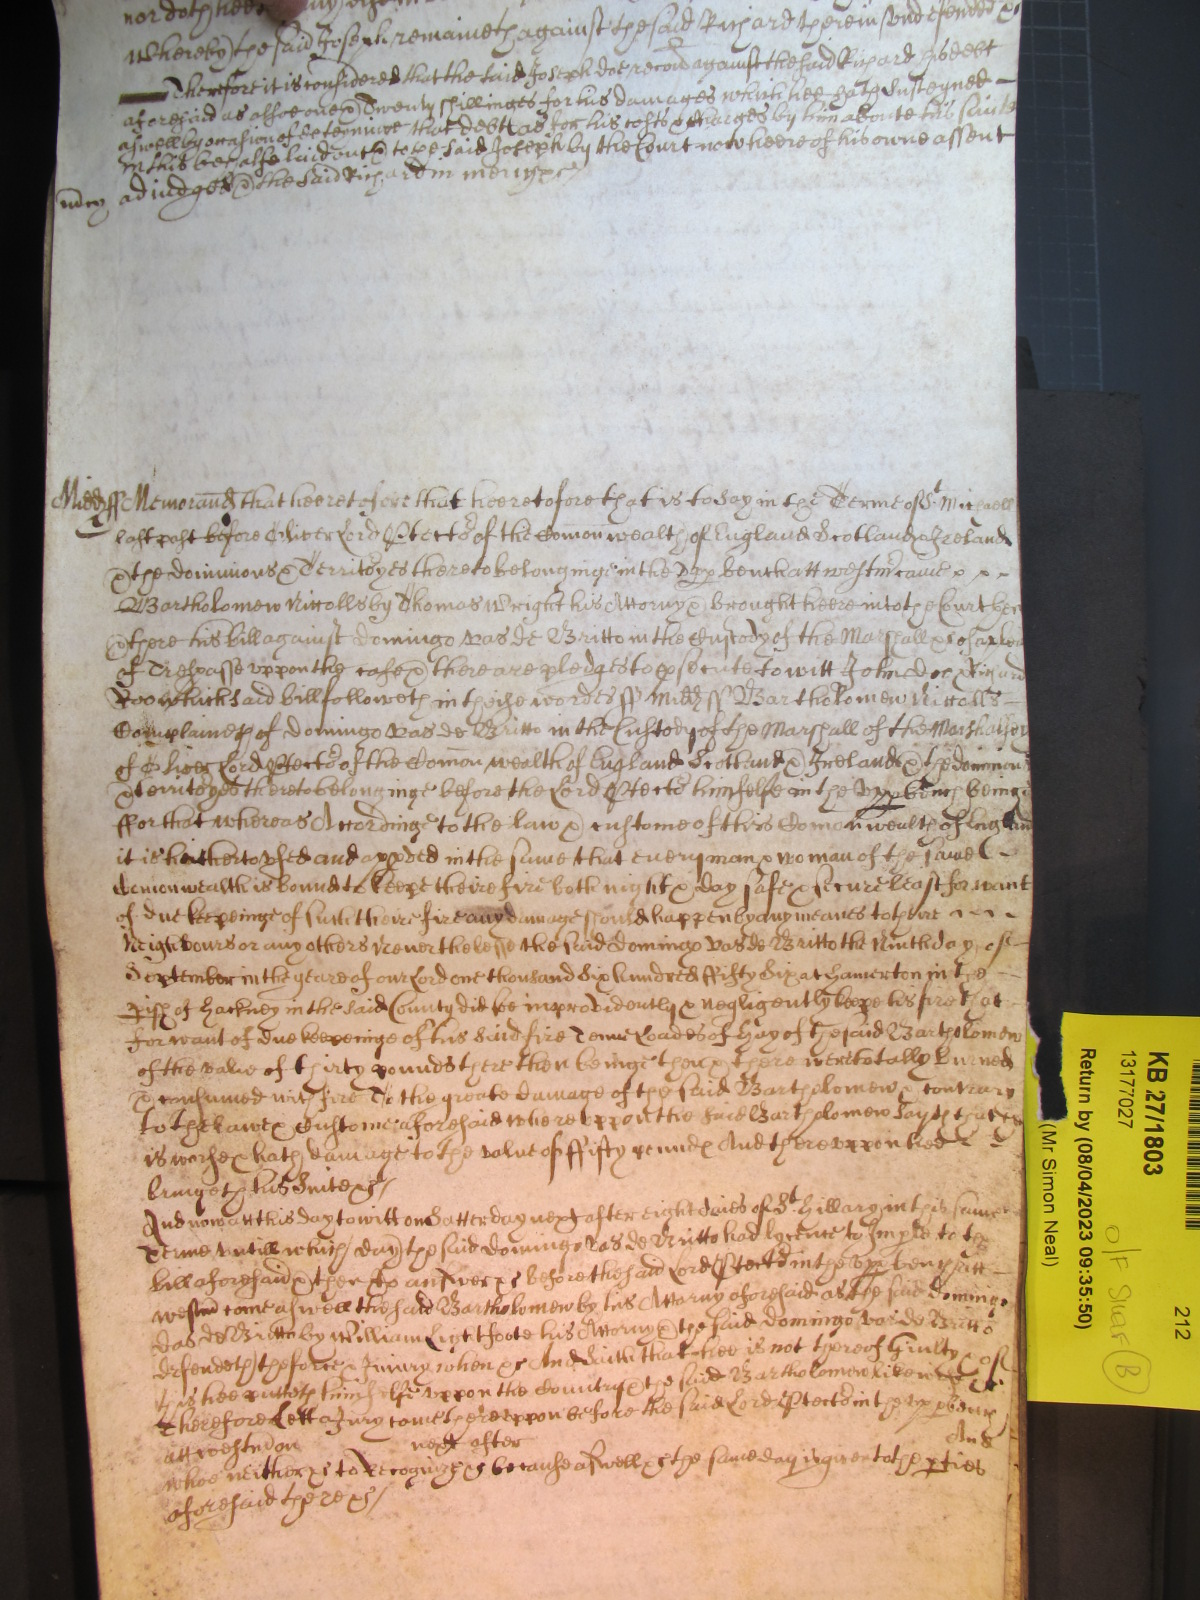 nor doth hee any
Whereby the said Joseph remaineth against the said Richard therein undefended &c
Therefore it is considered that the said Joseph doe recover against the said Richard his debt
aforesaid as alsoe one & Twenty shillinges for his damages which hee hath susteyned
aswell by occasion of deteyninge that debt as for his costs & charges by him aboute his suite
in this behalfe laid out & to the said Joseph by the Court now heere of his owne assent
mcy adiudged & the said Richard in mercy &c
Midd ss Memorand that heeretofore that heeretofore that is to say in the Terme of St Michaell
last past before Oliver Lord Ptector of the Comon wealth of England Scotland & Ireland
& the dominions & Territoryes thereto belonginge in the Upp bench att Westmr came
Bartholomew Niccolls by Thomas Wright his Attorny & brought heere into the Court then
& there his bill against Domingo Vas de Britto in the Custody of the Marshall &c of a plea
of Trespasse uppon the case & there are pledges to psecute to witt John doe & Richard
Roo which said bill followeth in theise wordes ss Midd ss Bartholomew Niccolls
Complaineth of Domingo Vas de Britto in the Custody of the Marshall of the Marshalsey
of Oliver Lord Ptector of the Comon wealth of England Scotland & Ireland & the dominions
& territoryes thereto belonginge before the Lord Ptector himselfe in the Upp bench beinge
ffor that whereas Accordinge to the law & custome of this Comon wealth of England
it is hitherto used and appved in the same that every man & woman of the same
Comonwealth is bound to keepe theire fire both night & day safe & secure least for want
of due keepeinge of such theire fire any damage should happen by any meanes to theire
Neighbours or any others Neverthelesse the said Domingo Vas de Britto the Ninth day of
September in the yeare of our Lord one thousand Six hundred ffifty Six at Hamerton in the
pish of Hackney in the said County did soe improvidently & negligently keepe his fire that
for want of due keepeinge of his said fire Tenne Loades of Hay of the said Bartholomew
of the value of thirty pounds there then beinge then & there were totally burned
& consumed with fire To the greate damage of the said Bartholomew & contrary
to the lawe & Custome aforesaid whereuppon the said Bartholomew saith that hee
is worse & hath damage to the value of ffifty pounds And thereuppon hee
bringeth his Suite &c
And now att this day to witt on Satterday next after eight daies of St Hillary in this same
Terme untill which day the said Domingo Vas de Britto had lycence to Imple to the
bill aforesaid & then to answer &c before the said Lord Ptector in the Upp bench att
Westm come aswell the said Bartholomew by his Attorny aforesaid as the said Domingo
Vas de Britto by William Lightfoote his Attorny & the said Domingo Vas de Britto
defendeth the force & Iniury when &c And saith that hee is not thereof Guilty & of
this hee putteth himselfe uppon the Country & the said Bartholomew likewise &c
Therefore Lett a Jury come thereuppon before the said Lord Ptector in the upp bench
att Westm on next after And
whoe neither &c to Recognize &c because aswell &c the same day is given to the pties
aforesaid there &c
KB 27/1803
13177027
212
Return by (08/04/2023 09:35:50)
(Mr Simon Neal)
B